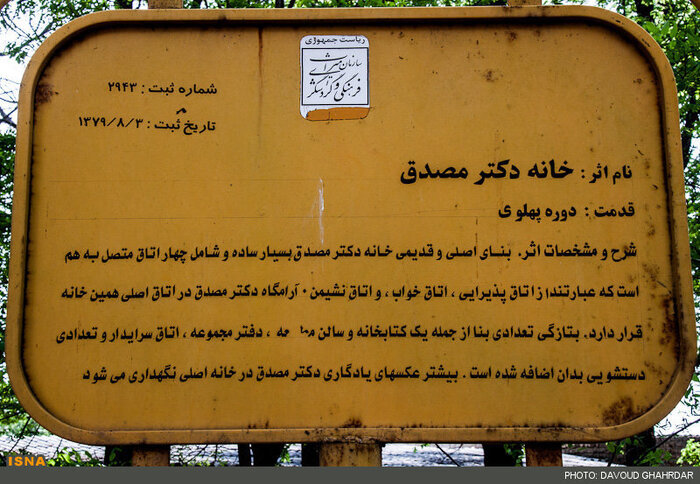 ریاست جمهوری
سازمان میراث
فرهنگی و گردشگری
شماره ثبت : ۲۹۴۳
تاریخ ثبت : ۱۳۷۹/۸/۳
نام اثر : خانه دکتر مصدق
قدمت : دوره پهلوی
شرح و مشخصات اثر. بنای اصلی و قدیمی خانه دکتر مصدق بسیار ساده و شامل چهار اتاق متصل به هم
است که عبارتند از اتاق پذیرایی ، اتاق خواب ، و اتاق نشیمن . آرامگاه دکتر مصدق در اتاق اصلی همین خانه
قرار دارد. بتازگی تعدادی بنا از جمله یک کتابخانه و سالن ، دفتر مجموعه ، اتاق سرایدار و تعدادی
دستشویی بدان اضافه شده است . بیشتر عکسهای یادگاری دکتر مصدق در خانه اصلی نگهداری می شود
ISNA
PHOTO: DAVOUD GHAHRDAR